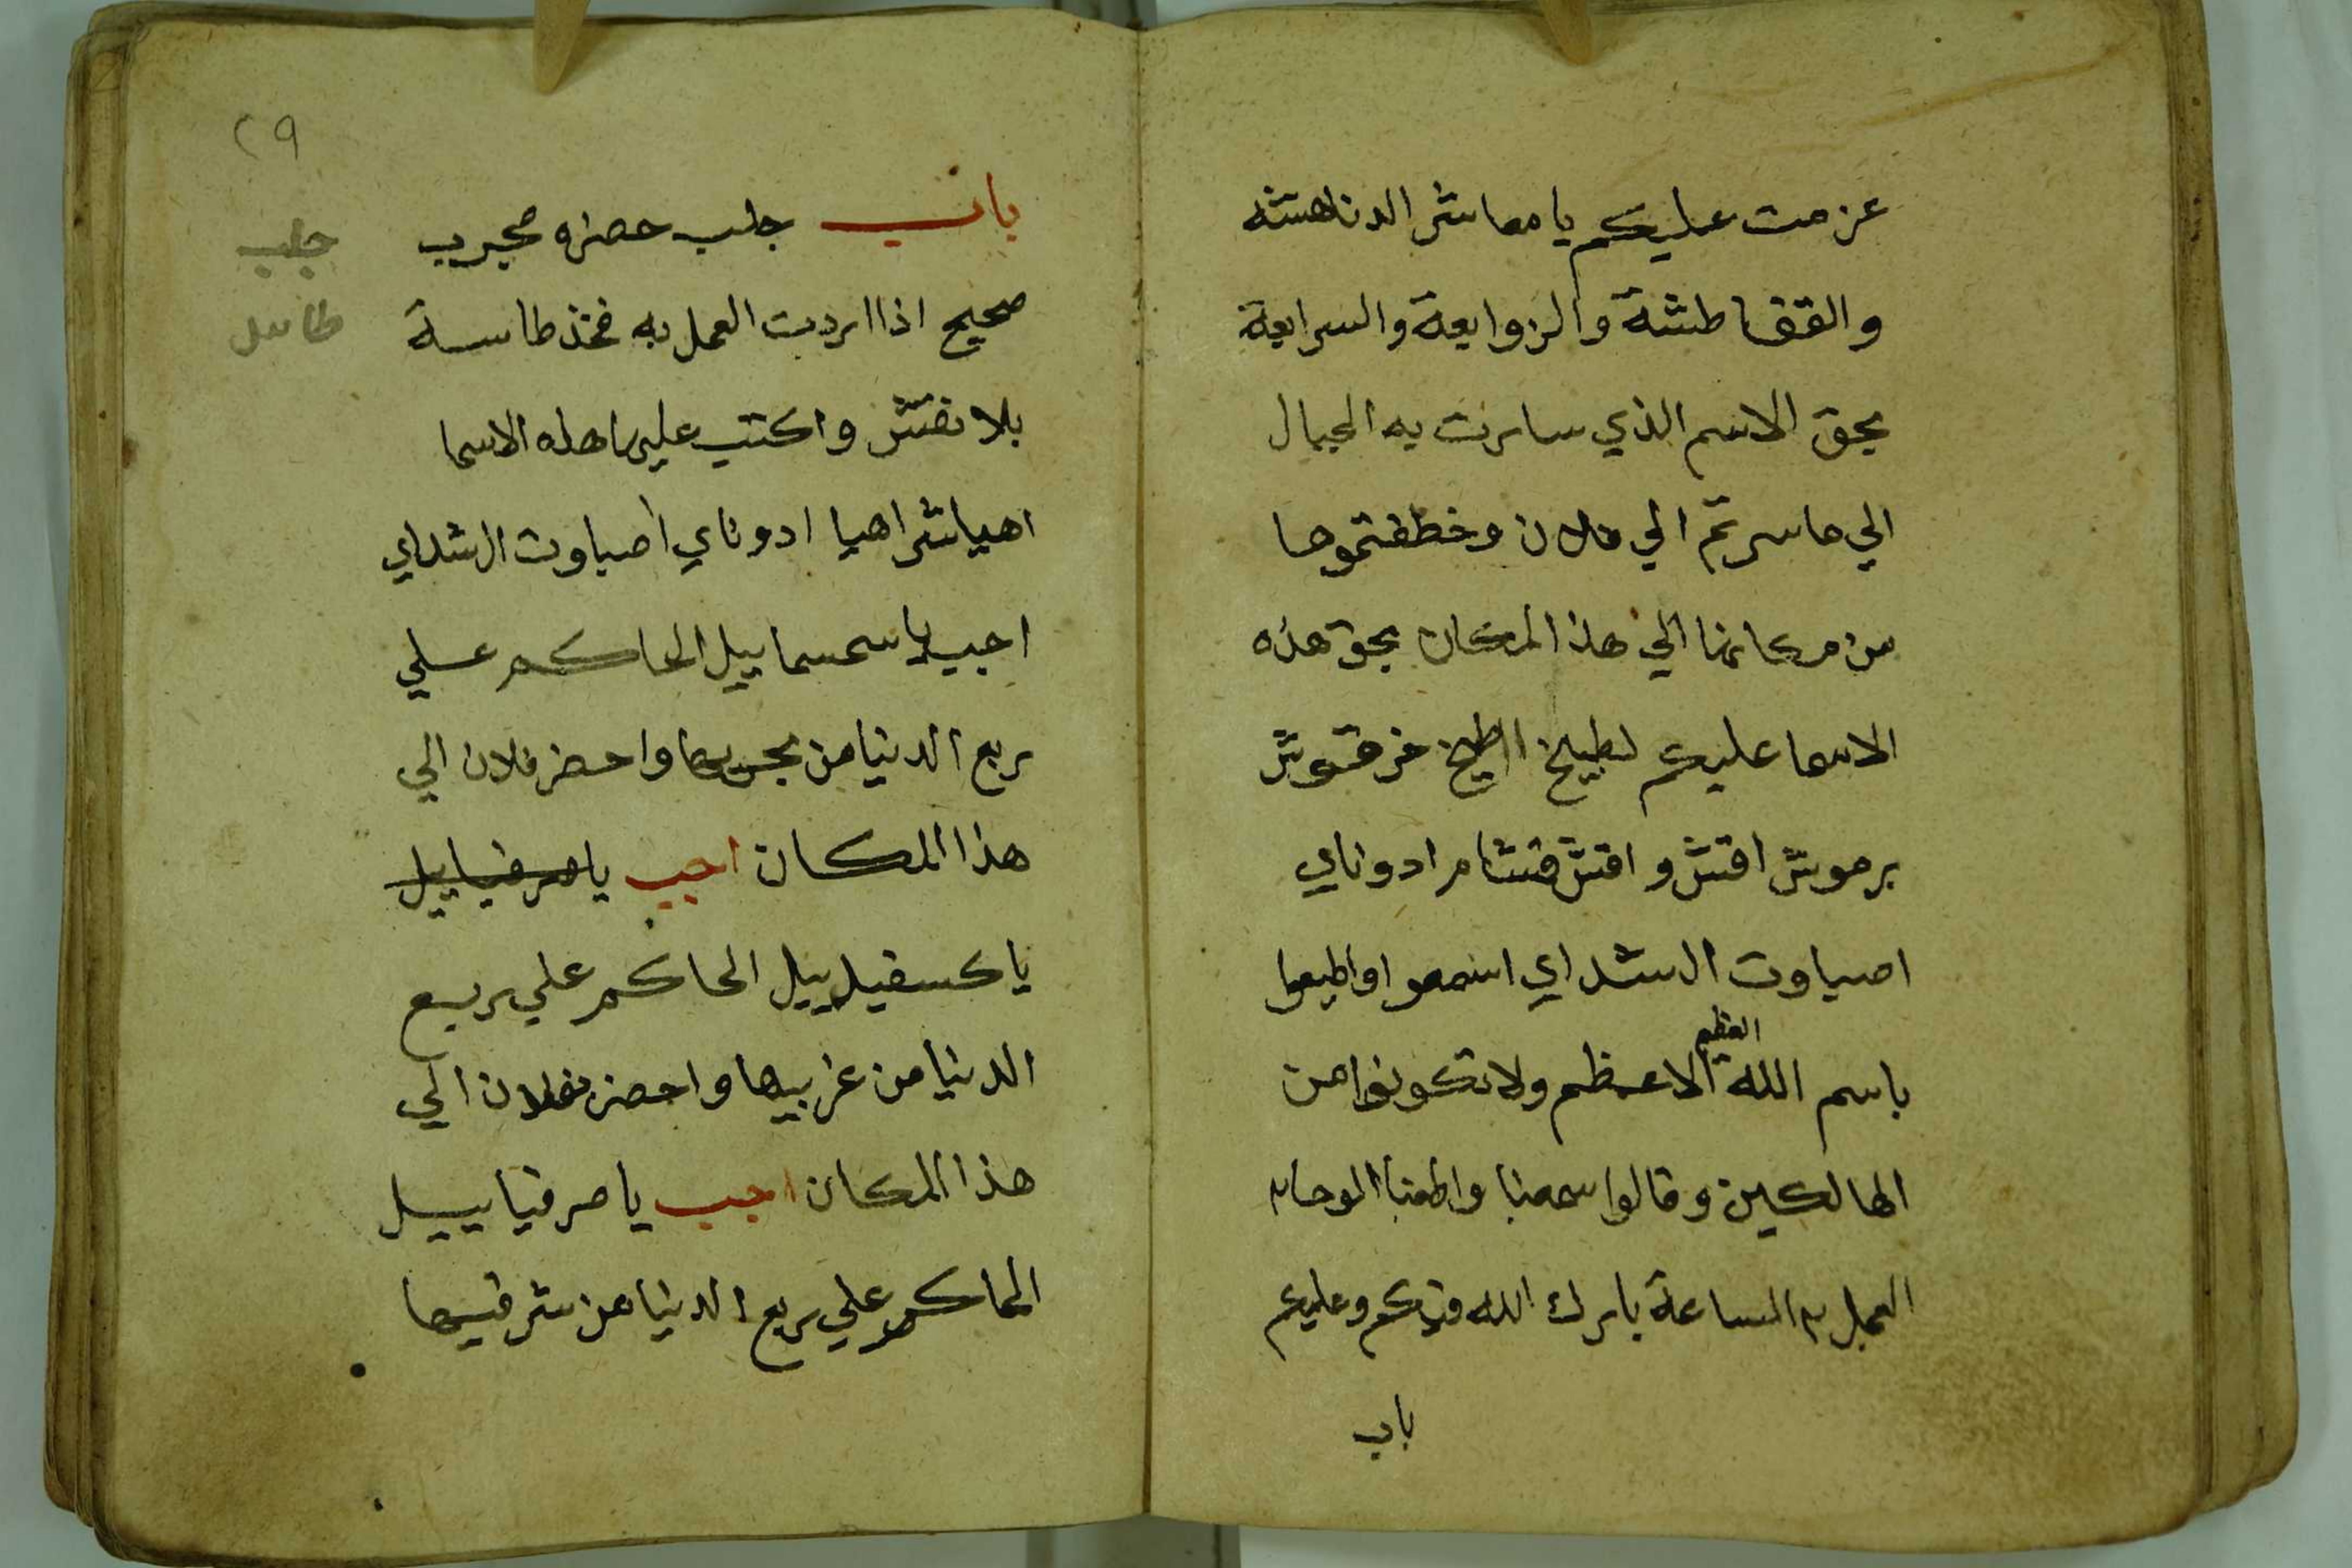 عزمت عليكم يا معاشر الدناهشه
والقفاطشة والزوابعة والسرابعة
بحق الاسم الذي سارت به الجبال
الي ما سرتم الي فلان وخطفتموها
من مكانها الي هذا المكان بحق هذه
الاسما عليكم لطيلخ اطيلخ خرقوش
برموش اقش واقش قشام ادوناي
اصباوت الشداي اسمعوا واطيعوا
باسم الله العظيم الاعظم ولا تكونوا من
الهالكين وقالوا سمعنا واطعنا الوحا٢
العجل٢ الساعة بارك الله فيكم وعليكم
باب
٢٩
باب جلب حضره مجرب
صحيح اذا اردت العمل به فخذ طاسة
بلا نقش واكتب عليها هذه الاسما
اهيا شراهيا ادوناي اصباوت الشداي
اجب يا سمسماييل الحاكم علي
ربع الدنيا من بحريها واحضر فلان الي
هذا المكان اجب يا صرفياييل
يا كسفيلييل الحاكم علي ربع
الدنيا من غربيها واحضر فلان الي
هذا المكان اجب يا صرفياييل
الحاكم علي ربع الدنيا من شرقيها
جلب